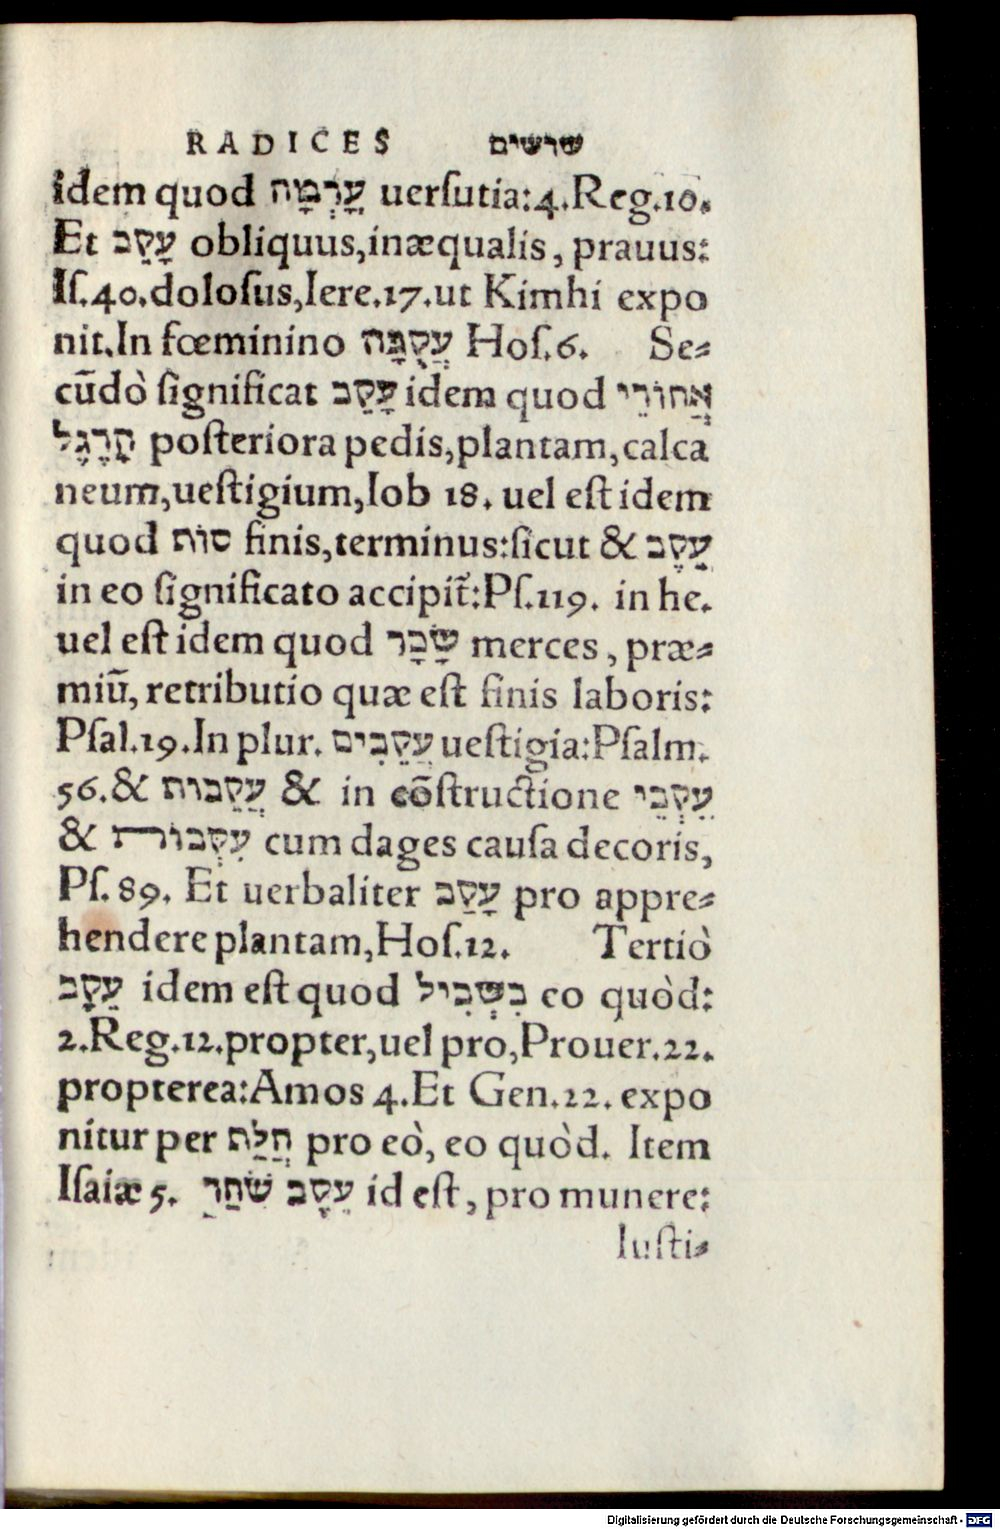 RADICES שרשים
idem quod עָרְמָה uersutia:4.Reg.10.
Et עָקֵב obliquus,inæqualis, prauus:
Is.40.dolosus,Iere.17.ut Kimhi expo
nit.In fœminino עֲקֻבָּה Hos.6. Se⸗
cũdò significat עָקֵב idem quod אֲחוֹרֵי
קָרֶגֶל posteriora pedis,plantam,calca
neum,uestigium,Iob 18. uel est idem
quod סוֹת finis,terminus:sicut & עָקֶב
in eo significato accipit̃:Ps.119. in he.
uel est idem quod שָׂכָר merces, præ⸗
miũ, retributio quæ est finis laboris:
Psal.19.In plur. עֲקֵבִים uestigia:Psalm.
56.& עֲקֵבוֹת & in cõstructione עִקְבֵי
& עִקְּבוֹת cum dages causa decoris,
Ps.89. Et uerbaliter עָקַב pro appre⸗
hendere plantam,Hos.12. Tertiò
עֵקָב idem est quod בִּשְׁבִיל eo quòd:
2.Reg.12.propter,uel pro,Prouer.22.
propterea:Amos 4.Et Gen.22. expo
nitur per חֲלַת pro eò, eo quòd. Item
Isaiæ 5. עֵקָב שֹׁחַר id est, pro munere:
Iusti⸗
Digitalisierung gefördert durch die Deutsche Forschungsgemeinschaft - DFG